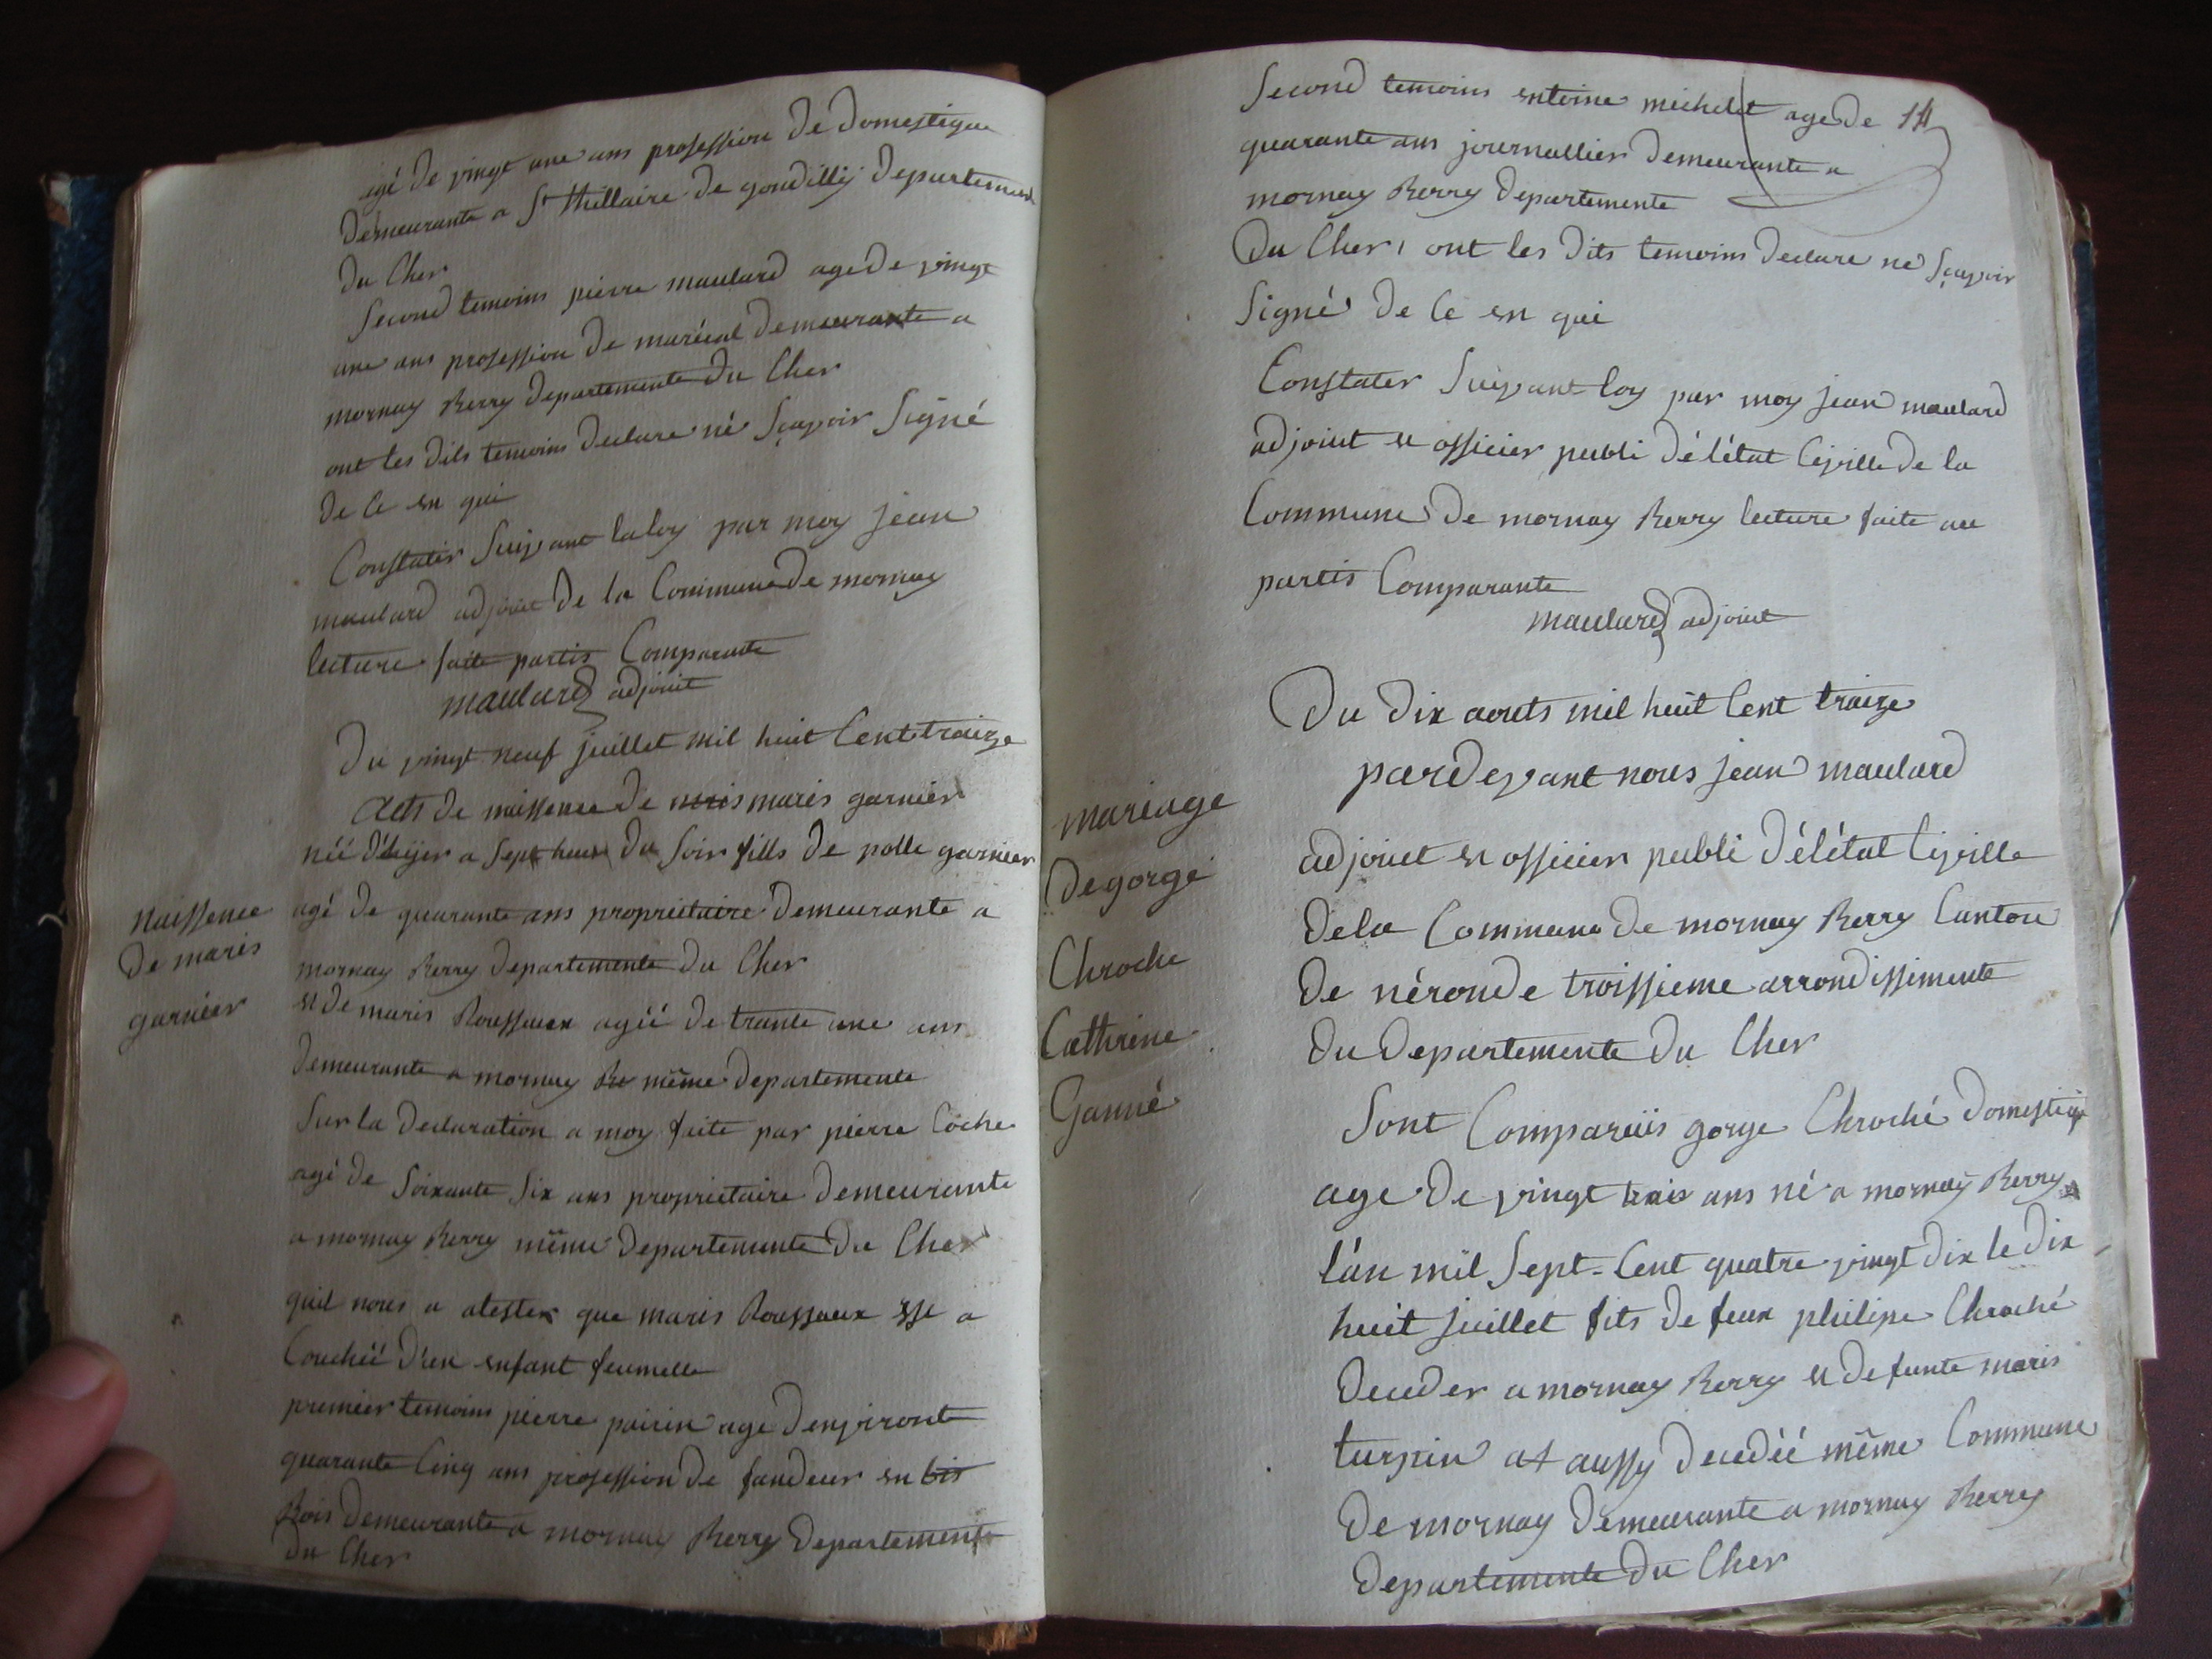 agé de vingt une ans profession de domestique
demeurante a St thillaire de gondilly departement
du Cher
Second temoins pierre maulard age de vingt
une ans profession de marécal demeurante a
mornay Berry departemente du Cher
ont les dits temoins declare né sçavoir signé
de ce en qui
Constater suivant la loy par moy jean
maulard adjoint de la Commune de mornay
lecture faite partis Comparante
maulard adjoint
Du vingt neuf juillet mil huit Cent traize
Naissence
de maris
garnier
acts de naissence de maris garnier
néé d'hijer a sept heure du soir fills de polle garnier
agé de quarante ans propriétaire demeurante a
mornay Berry departemente du Cher
et de maris Roussaux agéé de trante une ans
demeurante a mornay Be même departemente
sur la declaration a moy faite par pierre Coche
agé de soixante six ans propriétaire demeurante
a mornay Berry même departemente du Cher
quil nous a atester que maris Roussaux esse a
Couchéé d'en enfant feumelle
premier temoins pierre poirin age d'environt
quarante Cinq ans profession de fandeur en bis
Bois demeurante a mornay Berry departemente
du Cher
14
Second temoins entoine michelet age de
quarante ans journallier demeurante a
mornay Berry departemente
du Cher, ont les dits temoins declare né sçavoir
signé de ce en qui
Constater suivant loy par moy jean maulard
adjoint et officier publi dé l'état Civille de la
Commune de mornay Berry lecture faite au
partis Comparante
maulard adjoint
Du dix aouts mil huit Cent traize
mariage
de gorge
Chroche
Cathrine
Ganné
pardevant nous jean maulard
adjoint et officier publi d'élétat Civille
de la Commune de mornay Berry Canton
de néronde troissieme arrondissimente
du departemente du Cher
Sont Comparüis gorge Chroché domestiqe
age de vingt trais ans né a mornay Berry
l'án mil sept-Cent quatre vingt dix le dix
huit juillet fils de feux philipe Chroché
deceder a mornay Berry et defunte maris
turpin at aussy decedéé même Commune
de mornay demeurante a mornay Berry
departemente du Cher